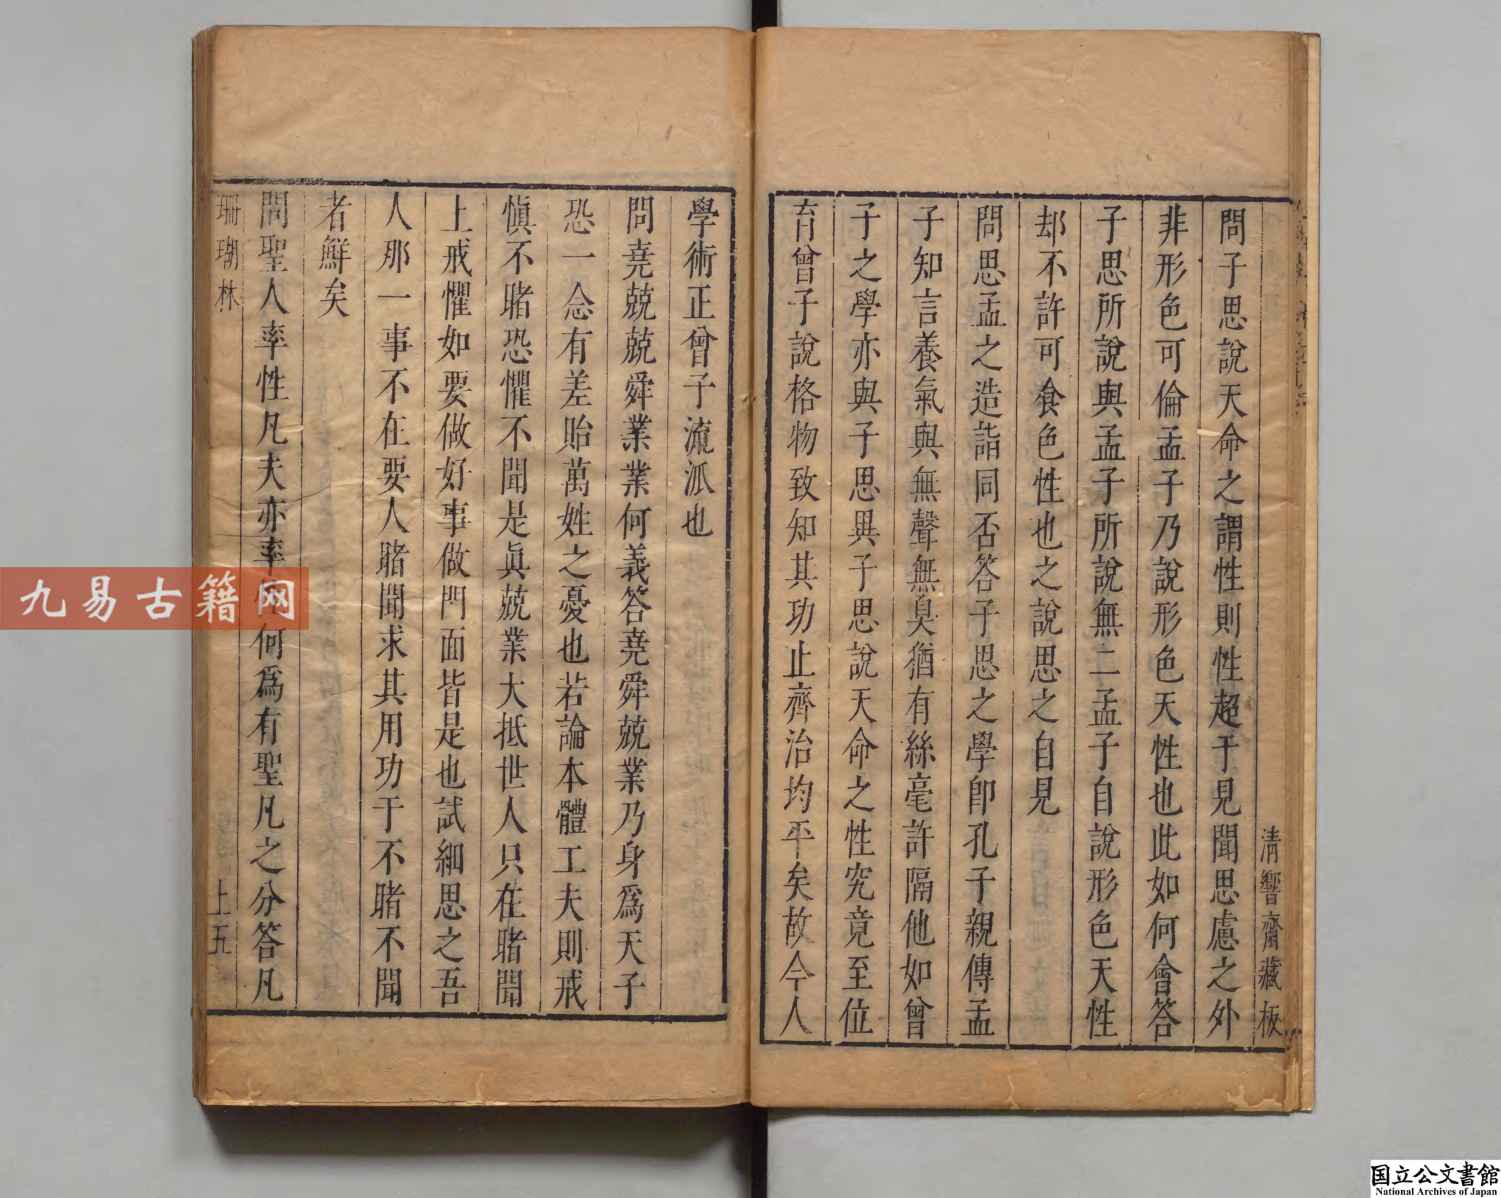 清響齋藏板
問子思說天命之謂性則性超于見聞思慮之外
非形色可倫孟子乃說形色天性也此如何會答
子思所說與孟子所說無二孟子自說形色天性
却不許可食色性也之說思之自見
問思孟之造詣同否答子思之學卽孔子親傳孟
子知言養氣與無聲無臭猶有絲毫許隔他如曾
子之學亦與子思異子思說天命之性究竟至位
育曾子說格物致知其功止齊治均平矣故今人
學術正曾子流派也
問堯兢兢舜業業何義答堯舜兢業乃身爲天子
恐一念有差貽萬姓之憂也若論本體工夫則戒
愼不睹恐懼不聞是眞兢業大抵世人只在睹聞
上戒懼如要做好事做門面皆是也試細思之吾
人那一事不在要人睹聞求其用功于不睹不聞
者鮮矣
問聖人率性凡夫亦率何爲有聖凡之分答凡
珊瑚林
上五
九易古籍网
国立公文書館
National Archives of Japan